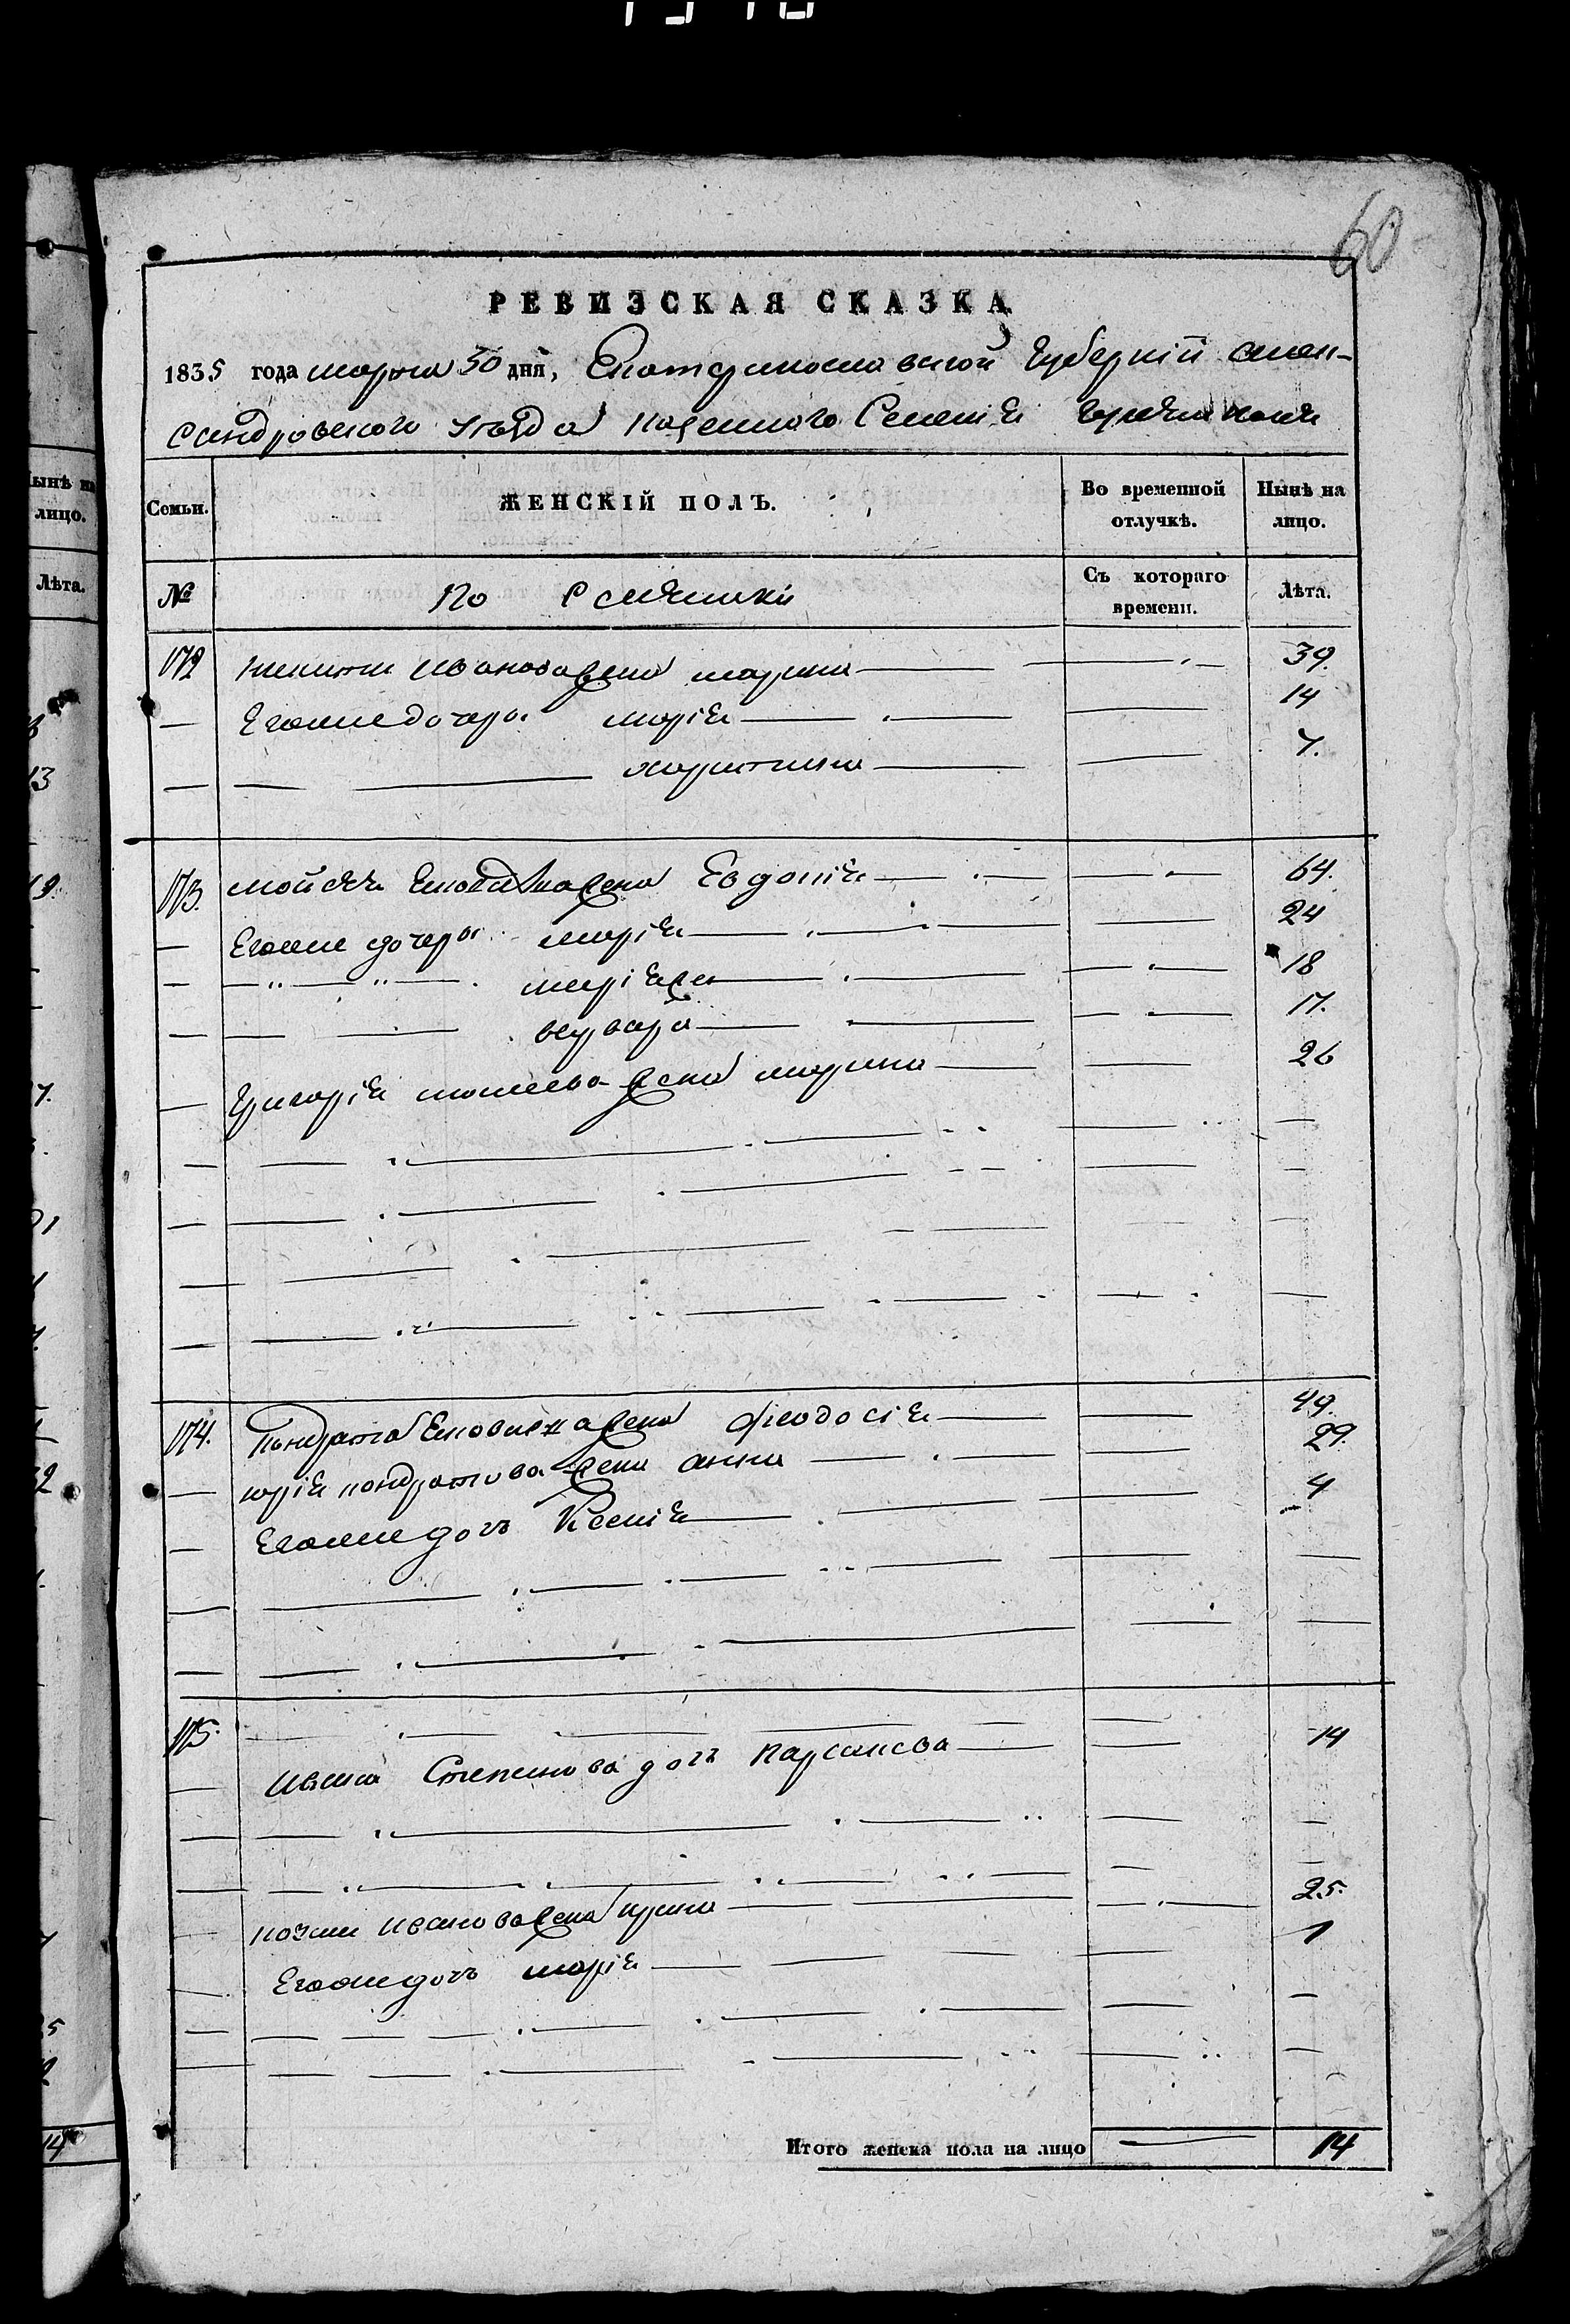 60
РЕВИЗСКАЯ СКАЗКА
1835 года марта 30 дня, Екатеринославской губернии Алек-
сандровского уезда казенного селения
Семьи.
ЖЕНСКІЙ ПОЛЪ.
Во временной отлучкѣ.
Нынѣ на лицо.
№
Съ котораго времени.
Лѣта.
172 Никиты Иванова жена марина 39.
Егоже дочери марія 14
харитина 7.
173. мойсея жена Евдокія 64.
Егоже дочери марія 24
18
варвара 17.
Григорія мосеева жена марина 26
174. Кондрата жена феодосія 49.
юрія кондратова жена анна 29.
Егоже дочь Ксенія 4
175.
Ивана Степанова дочь 14
козмы Иванова жена ирина 25.
Егоже дочь марія 1
Итого женска пола на лицо 14
ынѣ на
лицо.
Лѣта.
13
14